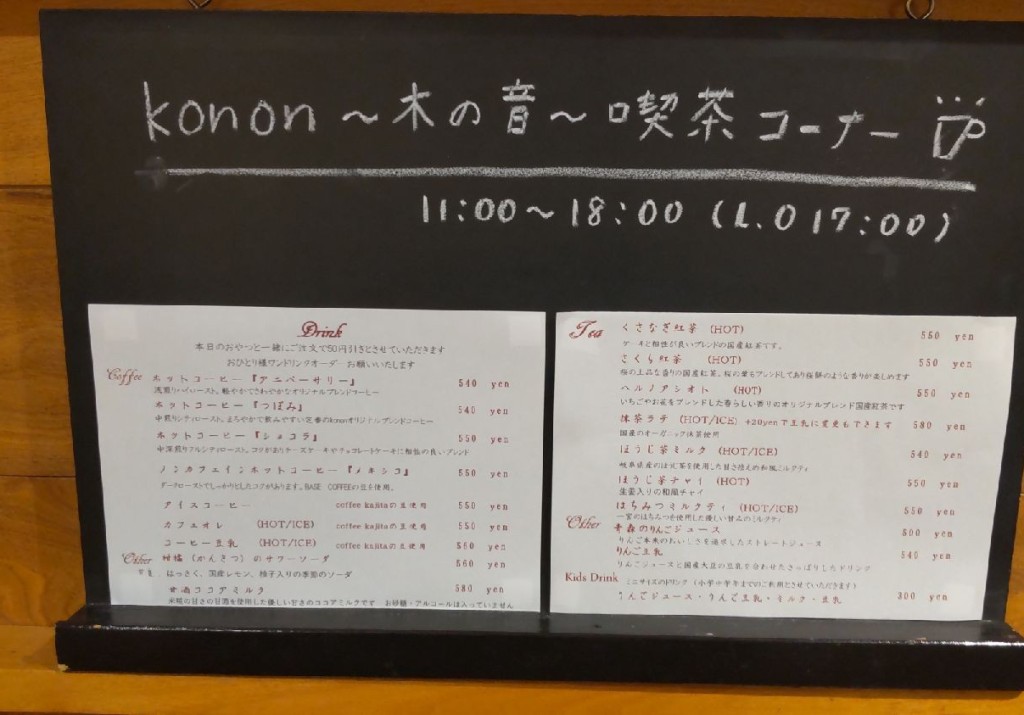 konon～木の音～喫茶コーナー
11:00～18:00 (L.O 17:00)
Drink
本日のおやつと一緒にご注文で50円引きとさせていただきます
おひとり様ワンドリンクオーダーお願いいたします
Coffee
ホットコーヒー『アニバーサリー』 540 yen
浅煎りハイロースト。軽やかでさわやかなオリジナルブレンドコーヒー
ホットコーヒー『つぼみ』 540 yen
中煎りシティロースト。まろやかで飲みやすい定番のkononオリジナルブレンドコーヒー
ホットコーヒー『ショコラ』 550 yen
中深煎りフルシティロースト。コクがありチーズケーキやチョコレートケーキに相性の良いブレンド
ノンカフェインホットコーヒー『メキシコ』 550 yen
ダークローストでしっかりとしたコクがあります。BASE COFFEEの豆を使用。
アイスコーヒー coffee kajitaの豆使用 550 yen
カフェオレ (HOT/ICE) coffee kajitaの豆使用 550 yen
コーヒー豆乳 (HOT/ICE) coffee kajitaの豆使用 560 yen
Other
柑橘（かんきつ）のサワーソーダ 560 yen
はっさく、国産レモン、柚子入りの季節のソーダ
甘酒ココアミルク 580 yen
米糀の甘さの甘酒を使用した優しい甘さのココアミルクです お砂糖・アルコールは入っていません
Tea
くさなぎ紅茶 (HOT) 550 yen
ケーキと相性が良いブレンドの国産紅茶です。
さくら紅茶 (HOT) 550 yen
桜の上品な香りの国産紅茶。桜の葉もブレンドしてあり桜餅のような香りが楽しめます
ハルノアシオト (HOT) 550 yen
いちごやお花をブレンドした春らしい香りのオリジナルブレンド国産紅茶です
抹茶ラテ (HOT/ICE) +20yenで豆乳に変更もできます 580 yen
国産のオーガニック抹茶使用
ほうじ茶ミルク (HOT/ICE) 540 yen
岐阜県産のほうじ茶を使用した甘さ控えの和風ミルクティ
ほうじ茶チャイ (HOT) 550 yen
生姜入りの和風チャイ
はちみつミルクティ (HOT/ICE) 550 yen
一宮のはちみつを使用した優しい甘みのミルクティ
Other
青森のりんごジュース 500 yen
りんご本来のおいしさを追求したストレートジュース
りんご豆乳 540 yen
りんごジュースと国産大豆の豆乳を合わせたさっぱりしたドリンク
Kids Drink
ミニサイズのドリンク（小学中学年までのご利用とさせていただきます）
りんごジュース・りんご豆乳・ミルク・豆乳 300 yen